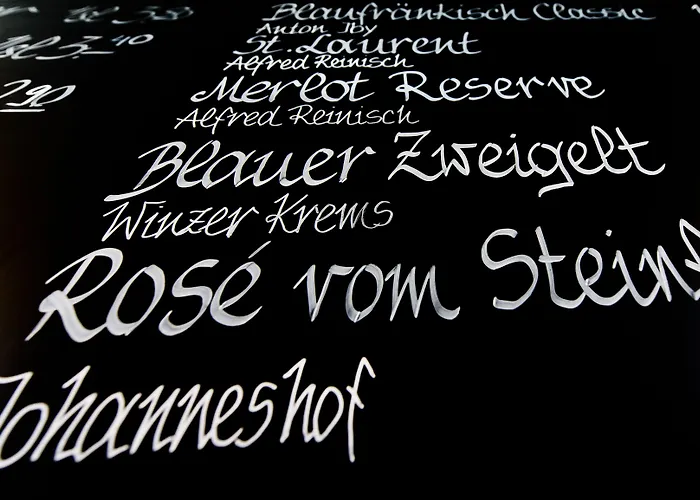 Blaufränkisch Classic
Anton Iby
St. Laurent
Alfred Reinisch
Merlot Reserve
Alfred Reinisch
Blauer Zweigelt
Winzer Krems
Rosé vom Stein
Johanneshof